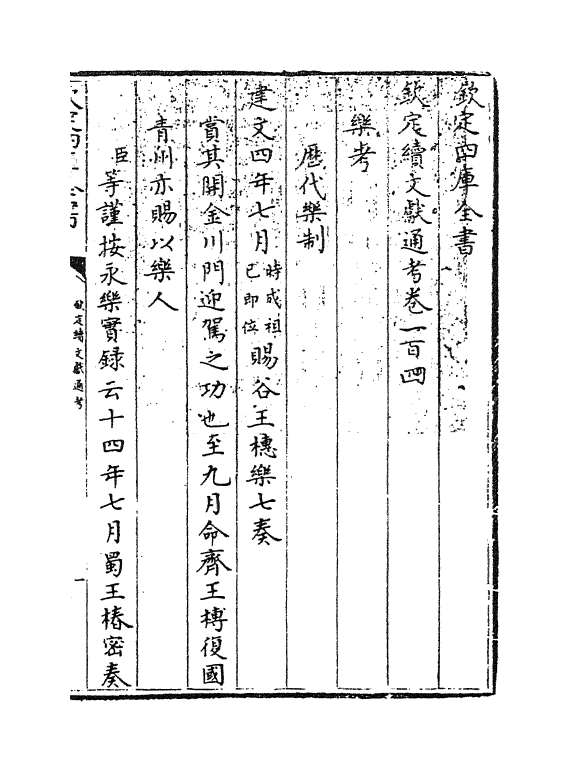 欽定四庫全書
欽定續文獻通考卷一百四
樂考
歷代樂制
建文四年七月時成祖已即位賜谷王橞樂七奏
賞其開金川門迎駕之功也至九月命齊王榑復國
青州亦賜以樂人
臣等謹按永樂實録云十四年七月蜀王椿密奏
欽定續文獻通考
一